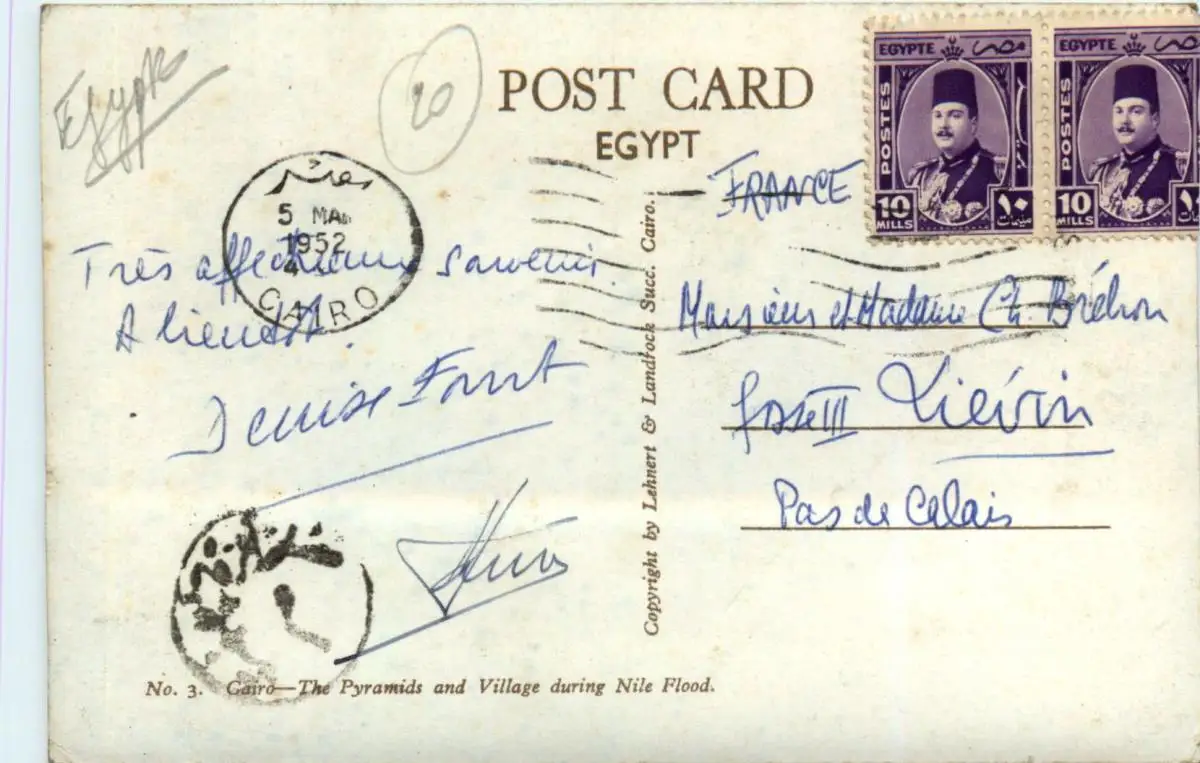 Egypte
20
POST CARD
EGYPT
EGYPTE مصر
POSTES
10 MILLS
١٠ مليمات
EGYPTE مصر
POSTES
10 MILLS
FRANCE
5 MA
1952
CAIRO
Très affectueux souvenir
A bientôt.
Denise
Monsieur et Madame Ch. Bréhon
fosse III Liévin
Pas de Calais
Copyright by Lehnert & Landrock Succ. Cairo.
No. 3. Cairo—The Pyramids and Village during Nile Flood.